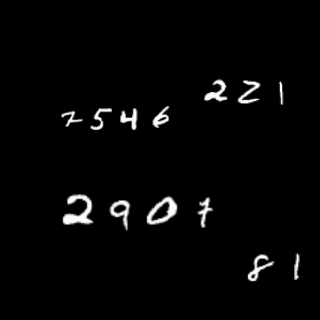 221
7546
2907
81